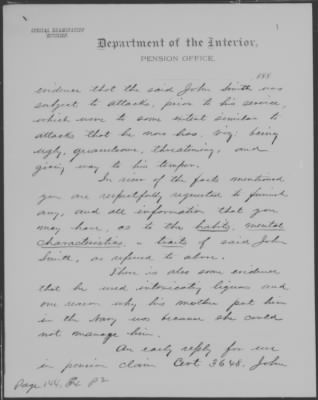 SPECIAL EXAMINATION
DIVISION.
Department of the Interior,
PENSION OFFICE.
188
evidence that the said John Smith was
subject to attacks, prior to his service,
which were to some extent similar to
attacks that he now has. viz: being
ugly, quarrelsome, threatening, and
giving way to his temper.
In view of the facts mentioned
you are respectfully requested to furnish
any, and all information that you
may have, as to the habits, mental
characteristics, or traits of said John
Smith, as refered to above.
There is also some evidence
that he used intoxicating liquors and
one reason why his mother put him
in the Navy was because she could
not manage him.
An early reply for use
in pension claim Cert 3648, John
Page 144, Ex P2